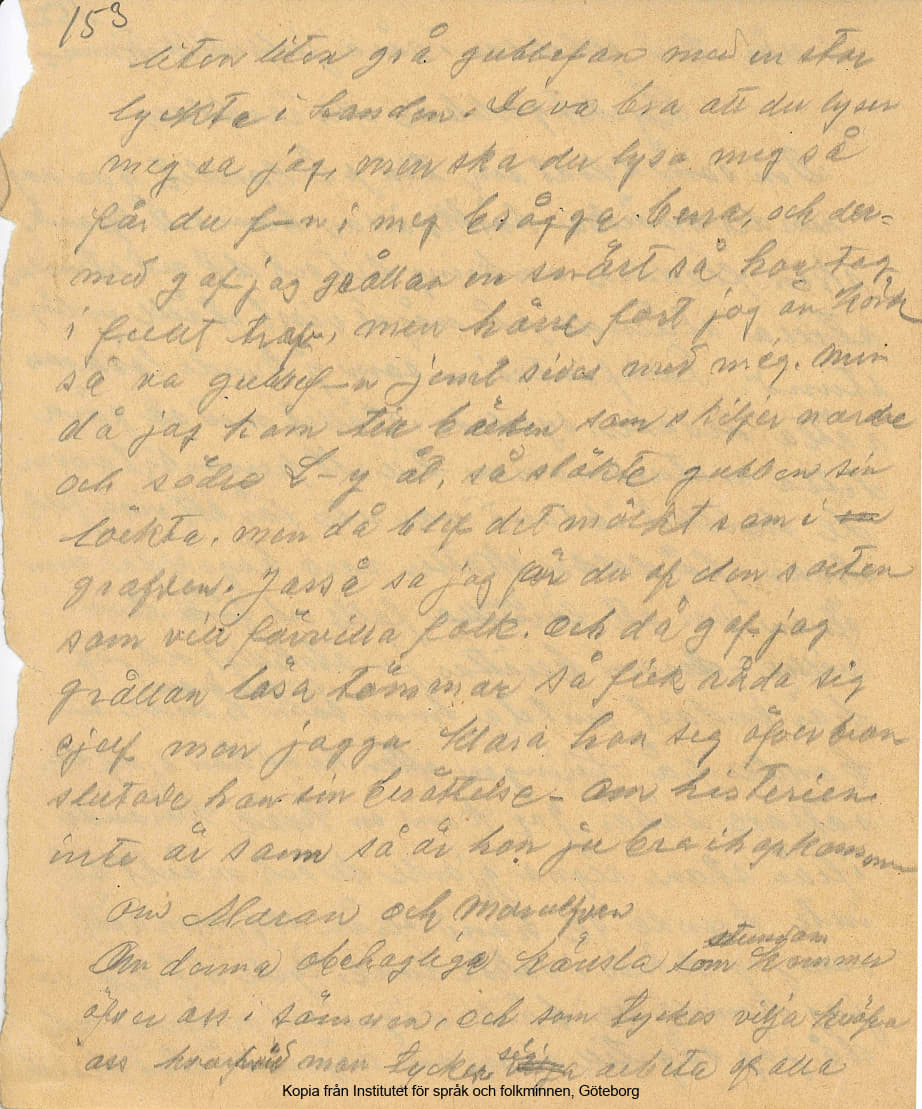 153
liten liten grå gubbefan med en stor
lyckta i handen. De va bra att du lyser
meg sa jag, men ska du lysa meg så
får du f-n i meg lägga bena, och der-
med gaf jag grållan en snärt så han tog
i fullt traf, men hårre fort jag än körde
så va gubbef-n jemt sidas med meg. Men
då jag kom till bäcken som skiljer nordre
och södre L-y ål, så släkte gubben sin
löckta, men då blef det mörkt som i
grafven. Jasså sa jag är du af den sorten
som vill förvilla folk. Och då gaf jag
grållan lösa tömmar så fick råda sig
sjelf men jagga klara han seg öfver bron
slutade han sin berättelse - Om historien
inte är sann så är hon ju bra ihopkommen
Om Maran och marulfven
Om denna obehagliga känsla som stundom kommer
öfver oss i sömnen, och som tyckes vilja kväfva
oss hvarvid man tycker sig arbeta af alla
Kopia från Institutet för språk och folkminnen, Göteborg